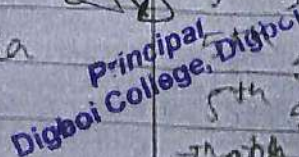 a
Principal
Digboi College, Digboi
5th